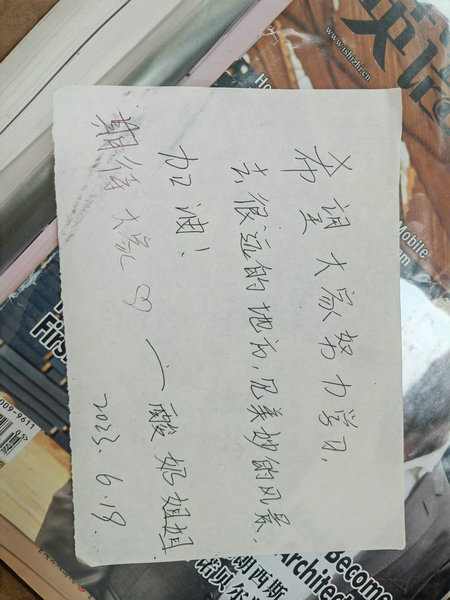 希望大家努力学习,
去很远的地方,见美妙的风景.
加油!
期待大家
—酸奶姐姐
2023.6.18.
英语
Mobile
009-9611
Become
Architect
朗西斯
诺贝尔